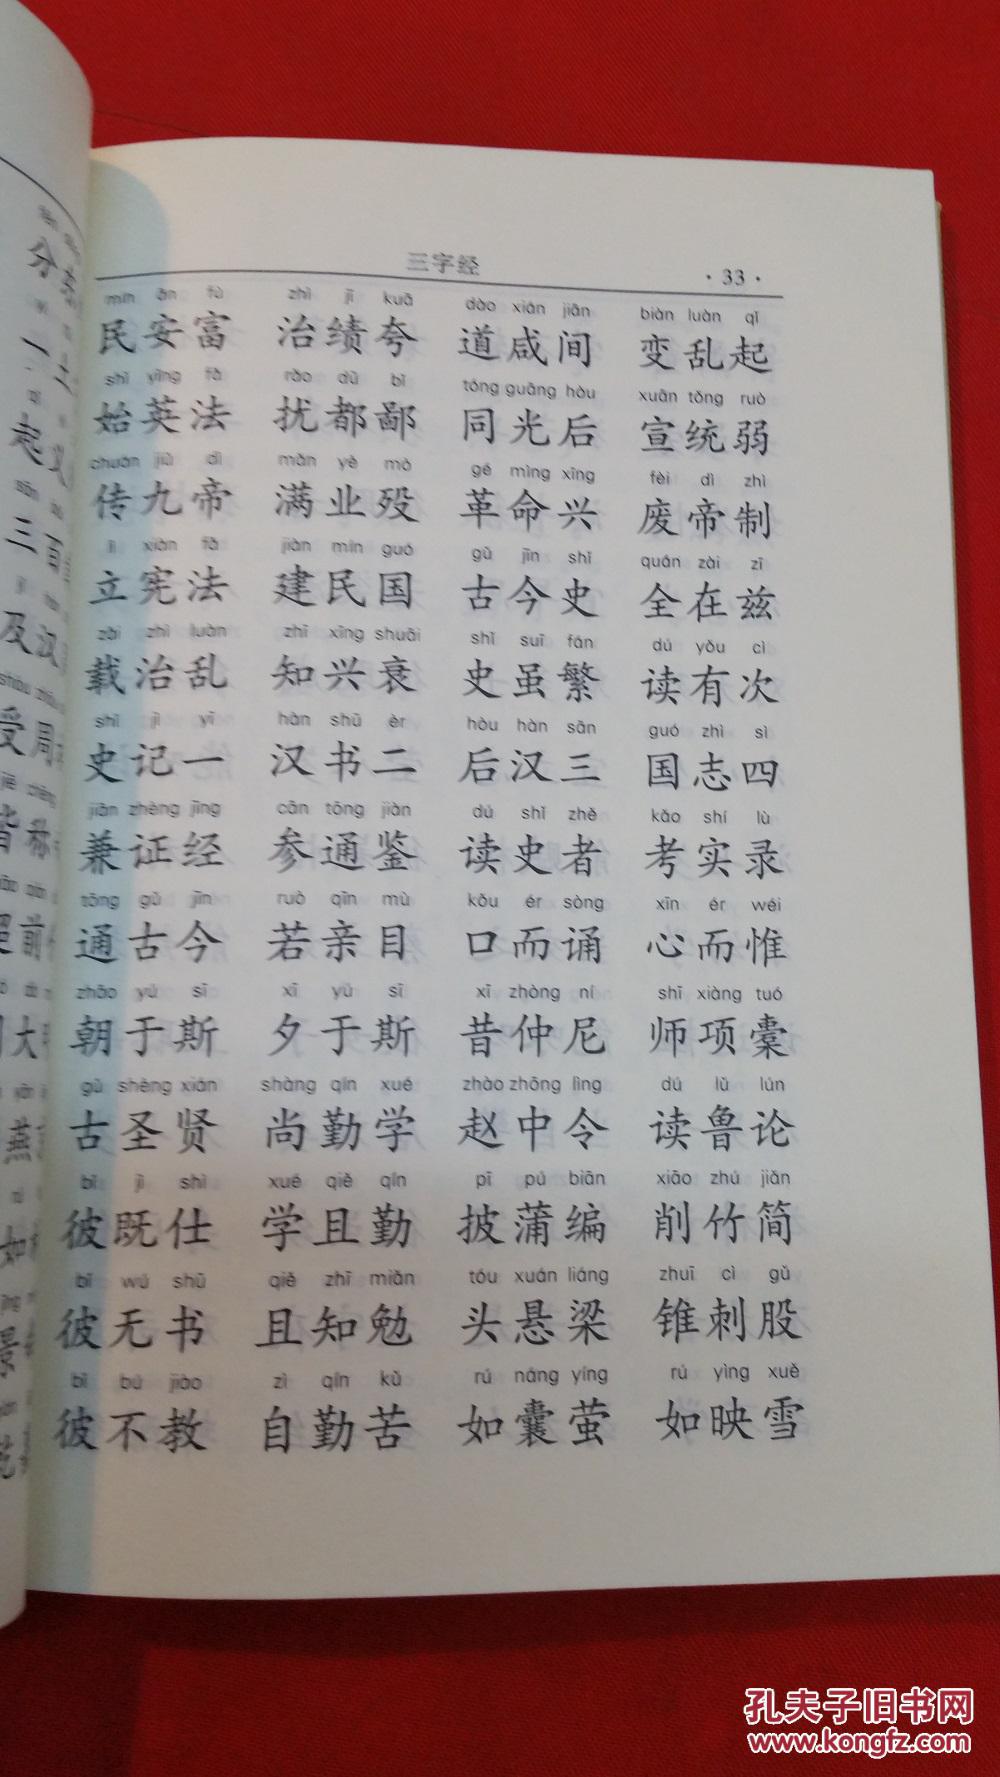 三字经 ·33·
mín ān fù zhì jì kuā dào xián jiān biàn luàn qǐ
民安富 治绩夸 道咸间 变乱起
shǐ yīng fǎ rǎo dū bǐ tóng guāng hòu xuān tǒng ruò
始英法 扰都鄙 同光后 宣统弱
chuán jiǔ dì mǎn yè mò gé mìng xīng fèi dì zhì
传九帝 满业殁 革命兴 废帝制
lì xiàn fǎ jiàn mín guó gǔ jīn shǐ quán zài zī
立宪法 建民国 古今史 全在兹
zǎi zhì luàn zhī xīng shuāi shǐ suī fán dú yǒu cì
载治乱 知兴衰 史虽繁 读有次
shǐ jì yī hàn shū èr hòu hàn sān guó zhì sì
史记一 汉书二 后汉三 国志四
jiān zhèng jīng cān tōng jiàn dú shǐ zhě kǎo shí lù
兼证经 参通鉴 读史者 考实录
tōng gǔ jīn ruò qīn mù kǒu ér sòng xīn ér wéi
通古今 若亲目 口而诵 心而惟
zhāo yú sī xī yú sī xī zhòng ní shī xiàng tuó
朝于斯 夕于斯 昔仲尼 师项橐
gǔ shèng xián shàng qín xué zhào zhōng lìng dú lǔ lún
古圣贤 尚勤学 赵中令 读鲁论
bǐ jì shì xué qiě qín pī pú biān xiāo zhú jiǎn
彼既仕 学且勤 披蒲编 削竹简
bǐ wú shū qiě zhī miǎn tóu xuán liáng zhuī cì gǔ
彼无书 且知勉 头悬梁 锥刺股
bǐ bú jiào zì qín kǔ rú náng yíng rú yìng xuě
彼不教 自勤苦 如囊萤 如映雪
孔夫子旧书网
www.kongfz.com